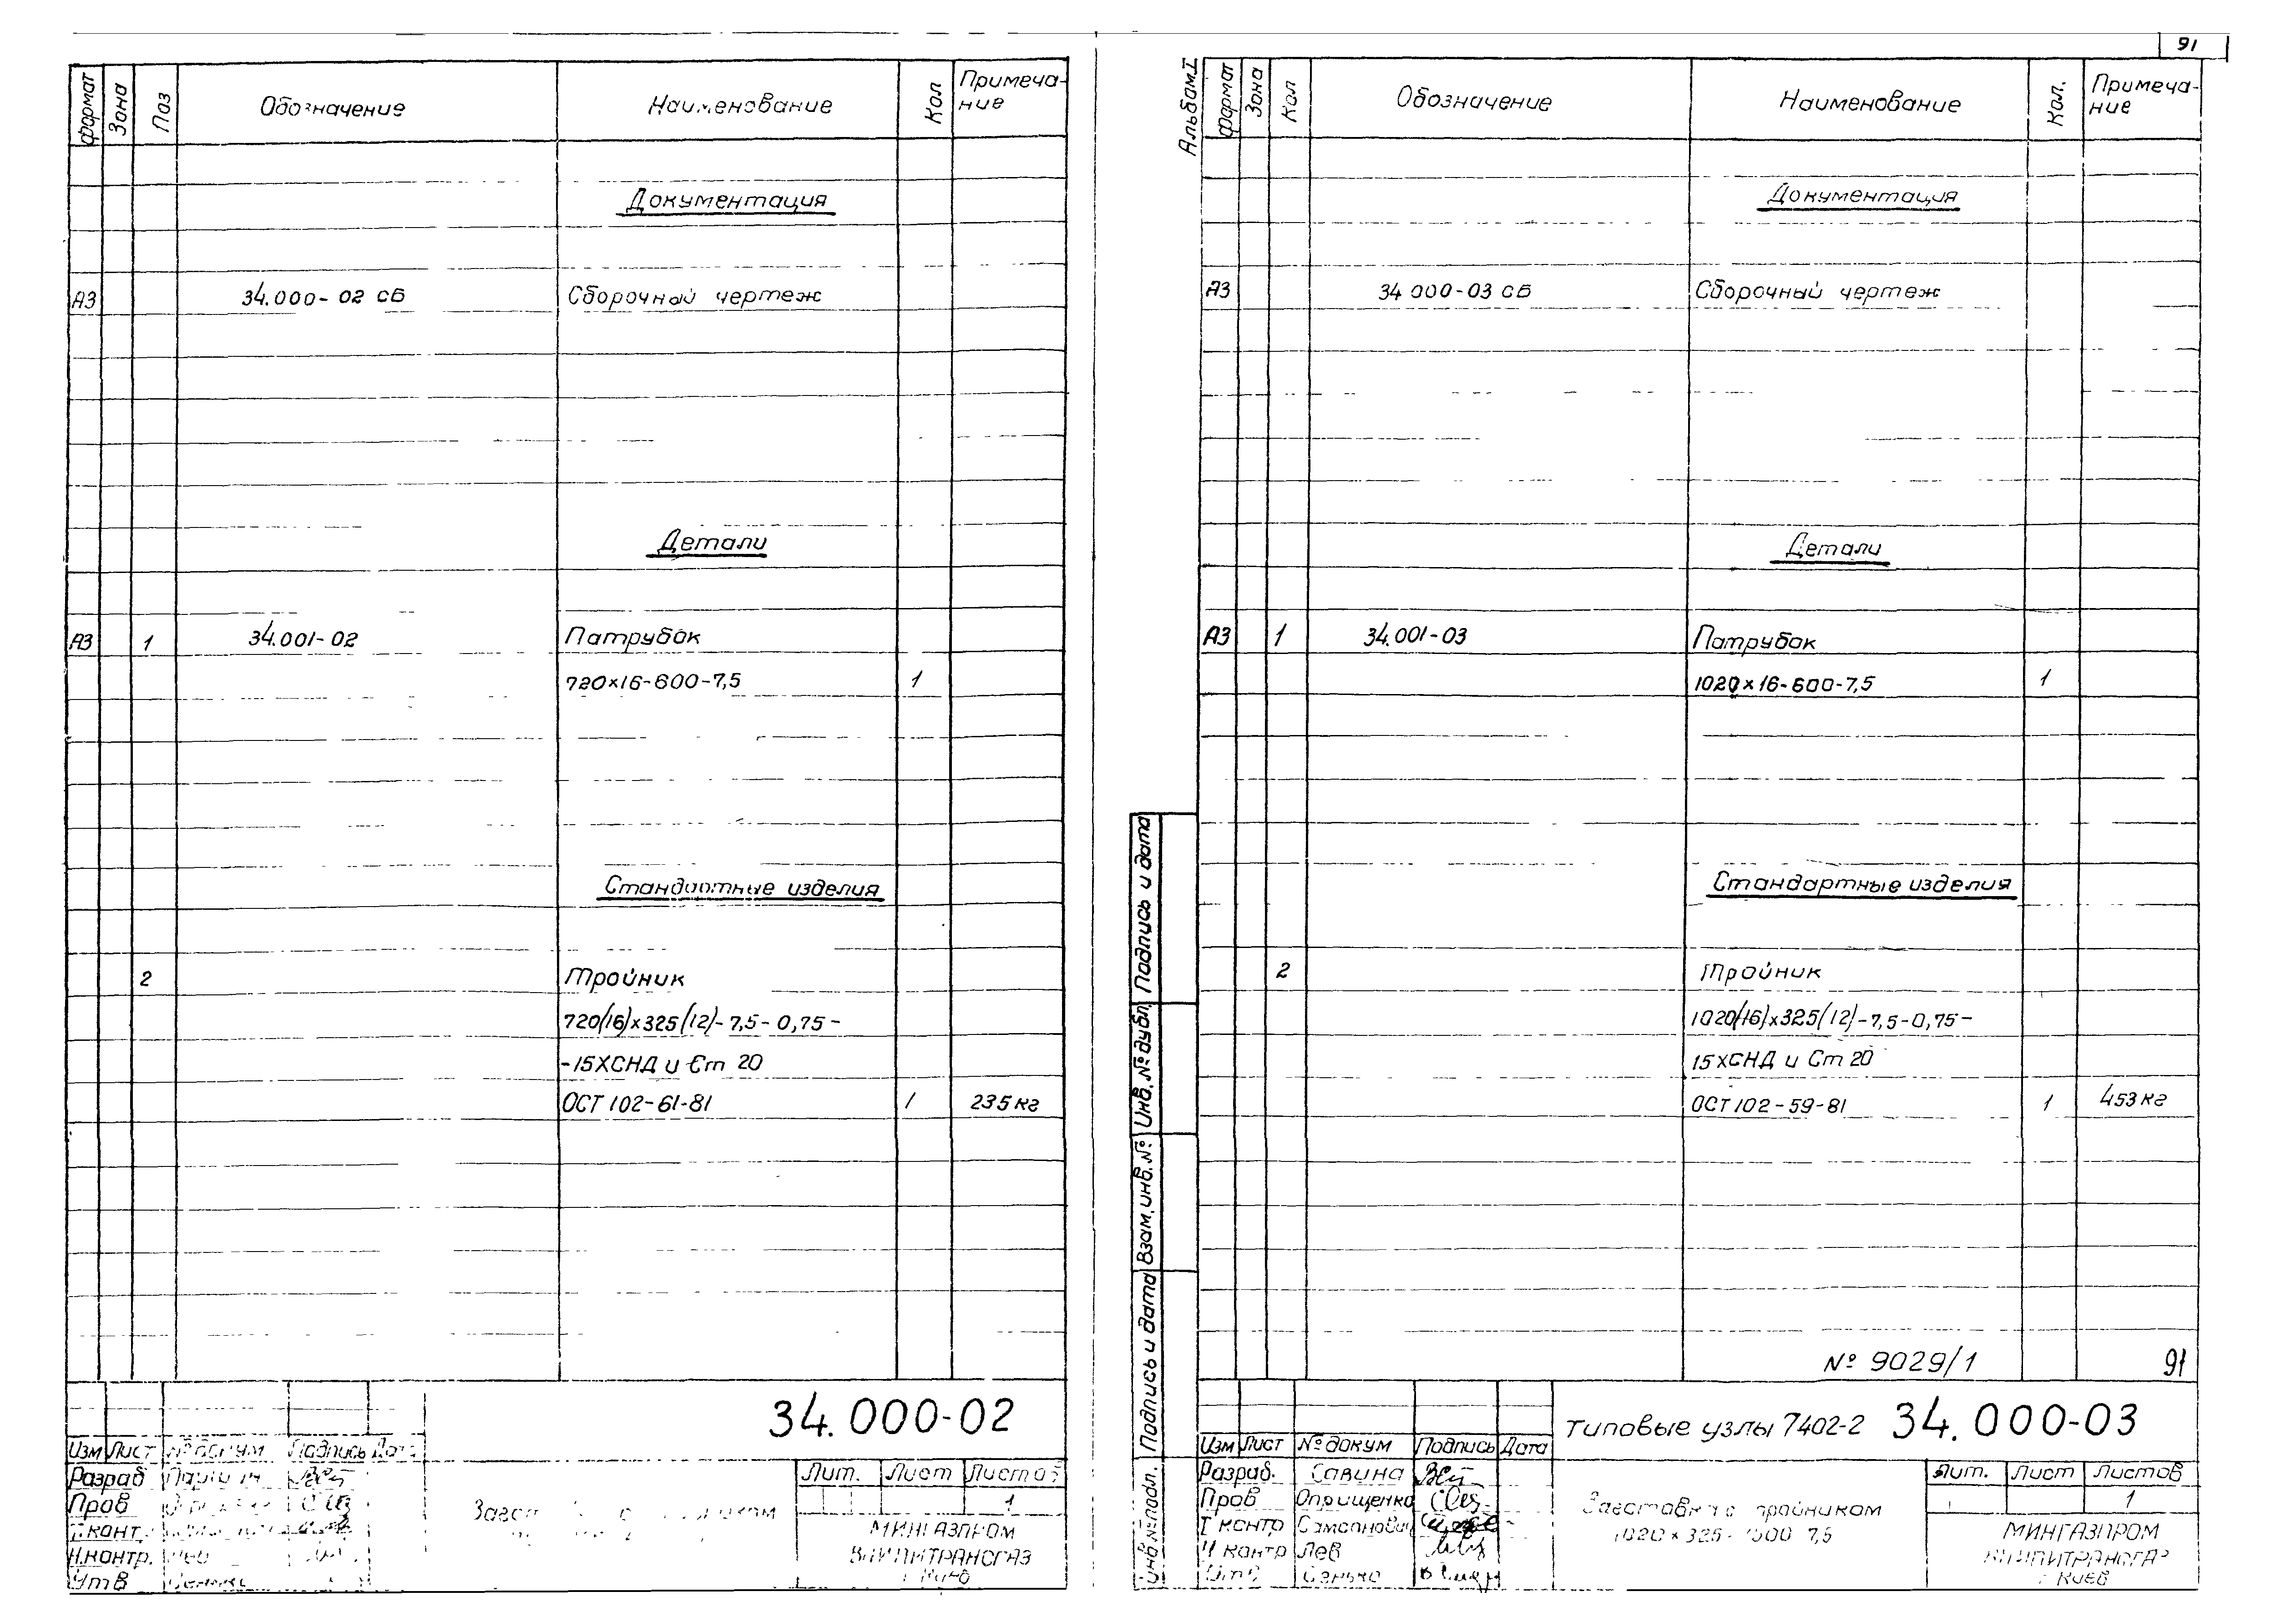 91
формат Зона Поз Обозначение Наименование Кол Примеча-
ние
Документация
А3 34.000-02 СБ Сборочный чертеж
Детали
А3 1 34.001-02 Патрубок
720×16-600-7,5 1
Стандартные изделия
2 Тройник
720(16)×325(12)-7,5-0,75-
-15ХСНД и Ст 20
ОСТ 102-61-81 1 235 кг
34.000-02
Изм Лист № докум. Подпись Дата
Разраб
Пров
Т.контр
Н.контр. Лев
Утв
Лит. Лист Листов
1
МИНГАЗПРОМ
ВНИПИТРАНСГАЗ
г. Киев
Альбом I
формат Зона Кол Обозначение Наименование Кол. Примеча-
ние
Документация
А3 34 000-03 СБ Сборочный чертеж
Детали
А3 1 34.001-03 Патрубок
1020×16-600-7,5 1
Стандартные изделия
2 Тройник
1020(16)×325(12)-7,5-0,75-
15ХСНД и Ст 20
ОСТ 102-59-81 1 453 кг
№ 9029/1 91
Подпись и дата
Инв. № дубл.
Взам. инв. №
Подпись и дата
Инв № подл.
Типовые узлы 7402-2 34.000-03
Изм Лист № докум Подпись Дата
Разраб. Савина
Пров Оприщенко
Т контр
Н контр Лев
Утв Сенько
Заготовка с тройником
1020×325-1600-7,5
Лит. Лист Листов
1
МИНГАЗПРОМ
ВНИПИТРАНСГАЗ
г Киев